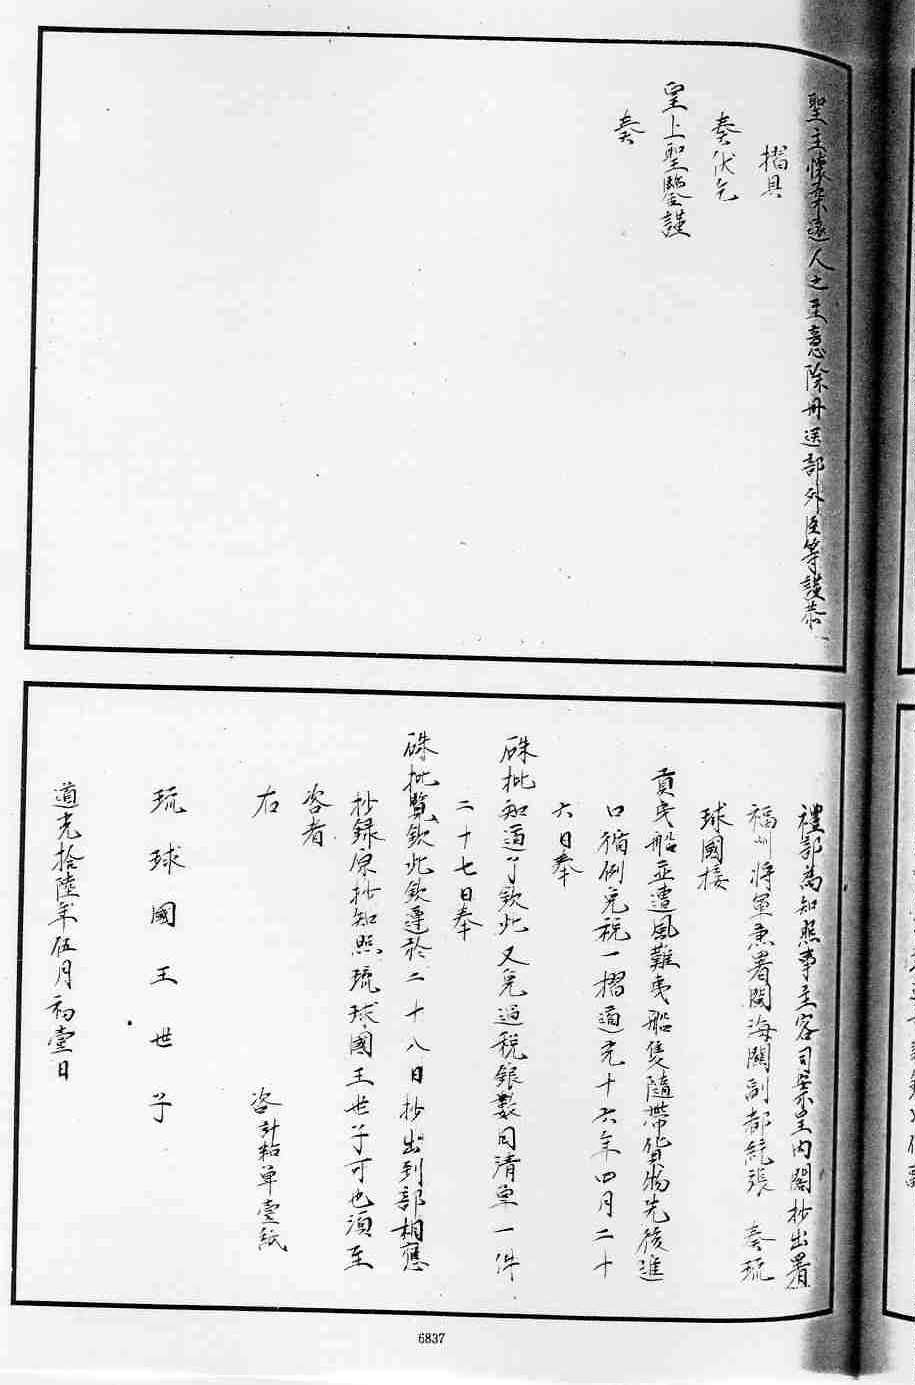 聖主懷柔遠人之至意除冊送部外臣等謹恭
摺具
奏伏乞
皇上聖鑒謹
奏
禮部為知照事主客司案呈內閣抄出署
福州將軍兼署閩海關副都統張 奏琉
球國接
貢夷船並遭風難夷船隻隨帶貨物先後進
口循例免稅一摺道光十六年四月二十
六日奉
硃批知道了欽此又免過稅銀數目清單一件
二十七日奉
硃批覽欽此欽遵於二十八日抄出到部相應
抄錄原抄知照琉球國王世子可也須至
咨者
右 咨計粘單壹紙
琉球國王世子
道光拾陸年伍月初壹日
6837